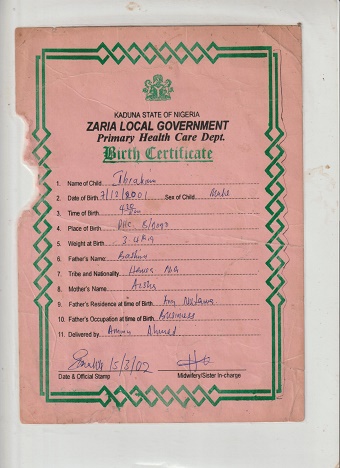 KADUNA STATE OF NIGERIA
ZARIA LOCAL GOVERNMENT
Primary Health Care Dept.
Birth Certificate
1. Name of Child Ibrahim
2. Date of Birth 7/12/2001 Sex of Child Male
3. Time of Birth
4. Place of Birth
5. Weight at Birth 3.4kg
6. Father's Name: Bashir
7. Tribe and Nationality Hausa
8. Mother's Name: Aisha
9. Father's Residence at time of Birth:
10. Father's Occupation at time of Birth: Business
11. Delivered by Ahmed
15/3/02
Date & Official Stamp Midwifery/Sister In-charge